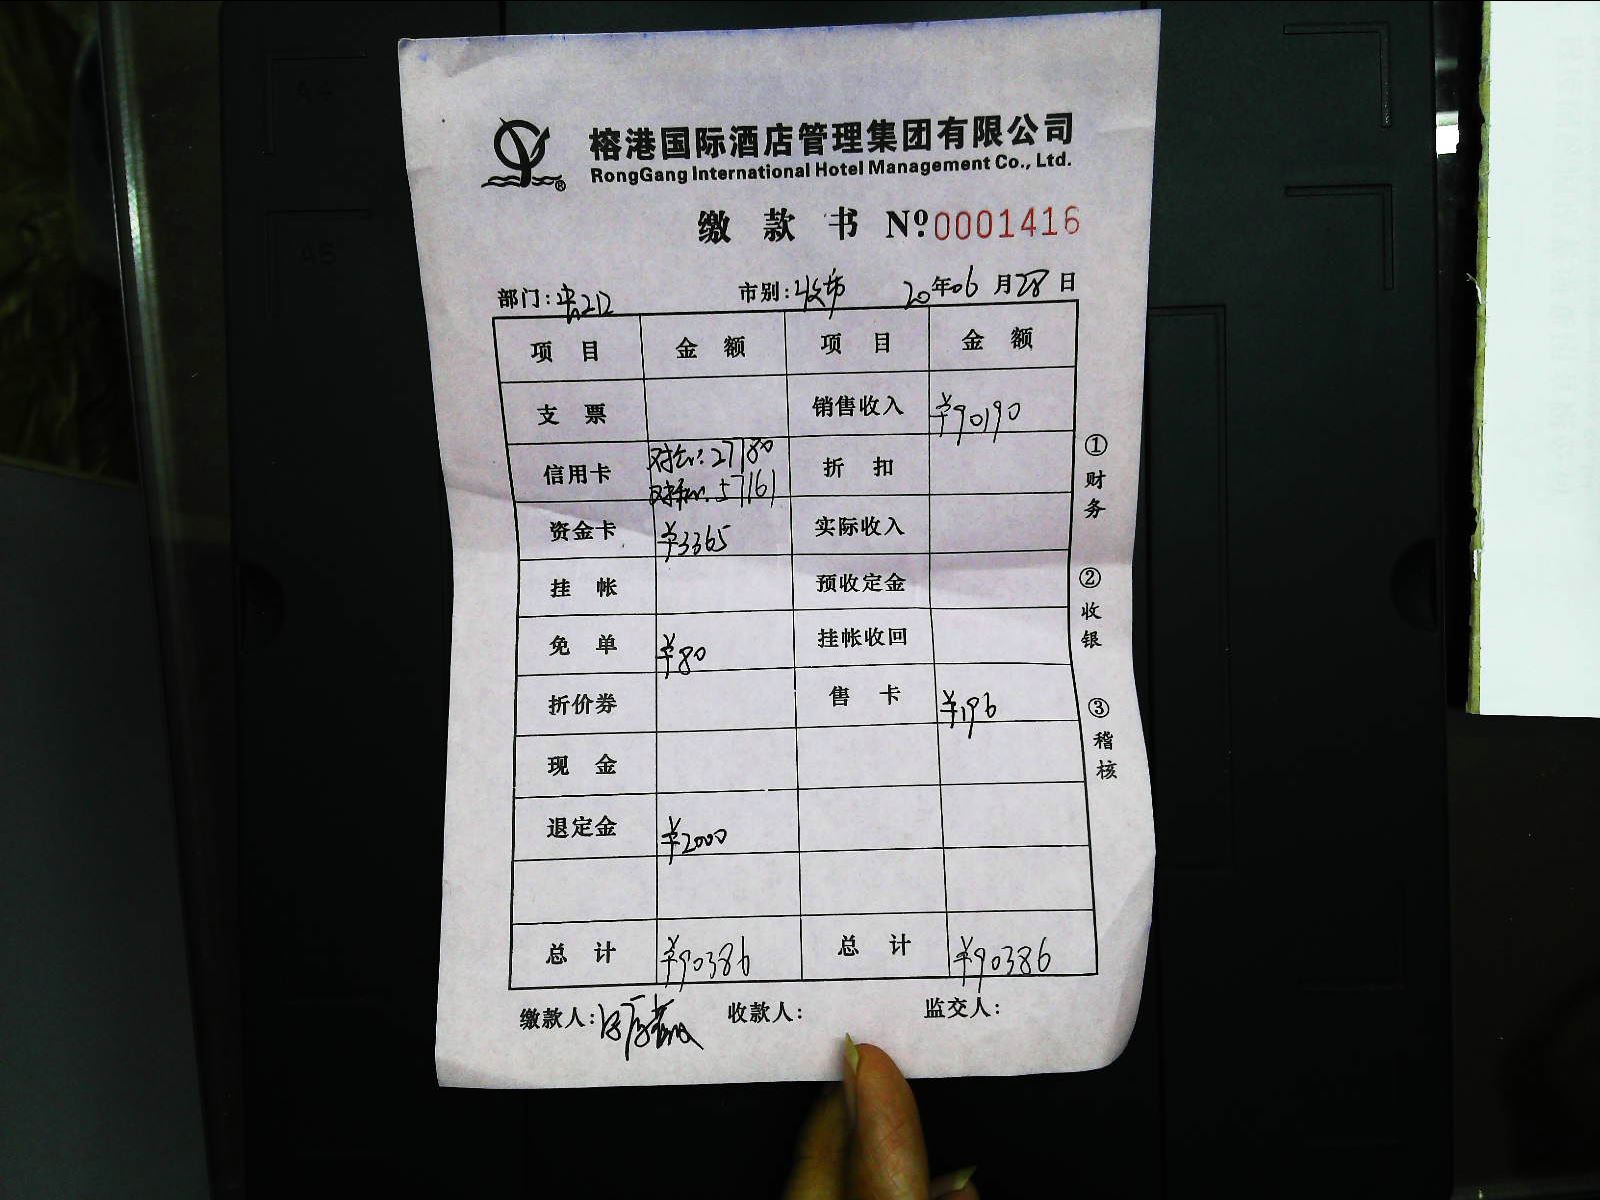 榕港国际酒店管理集团有限公司
RongGang International Hotel Management Co., Ltd.
缴款书 Nº 0001416
部门: 市别: 20年06月28日
项目 金额 项目 金额
支票 销售收入 ¥90190
信用卡 27780 57161 折扣
资金卡 ¥3365 实际收入
挂帐 预收定金
免单 ¥80 挂帐收回
折价券 售卡 ¥196
现金
退定金 ¥2000
总计 ¥90386 总计 ¥90386
缴款人: 收款人: 监交人:
①财务
②收银
③稽核
A4
A5